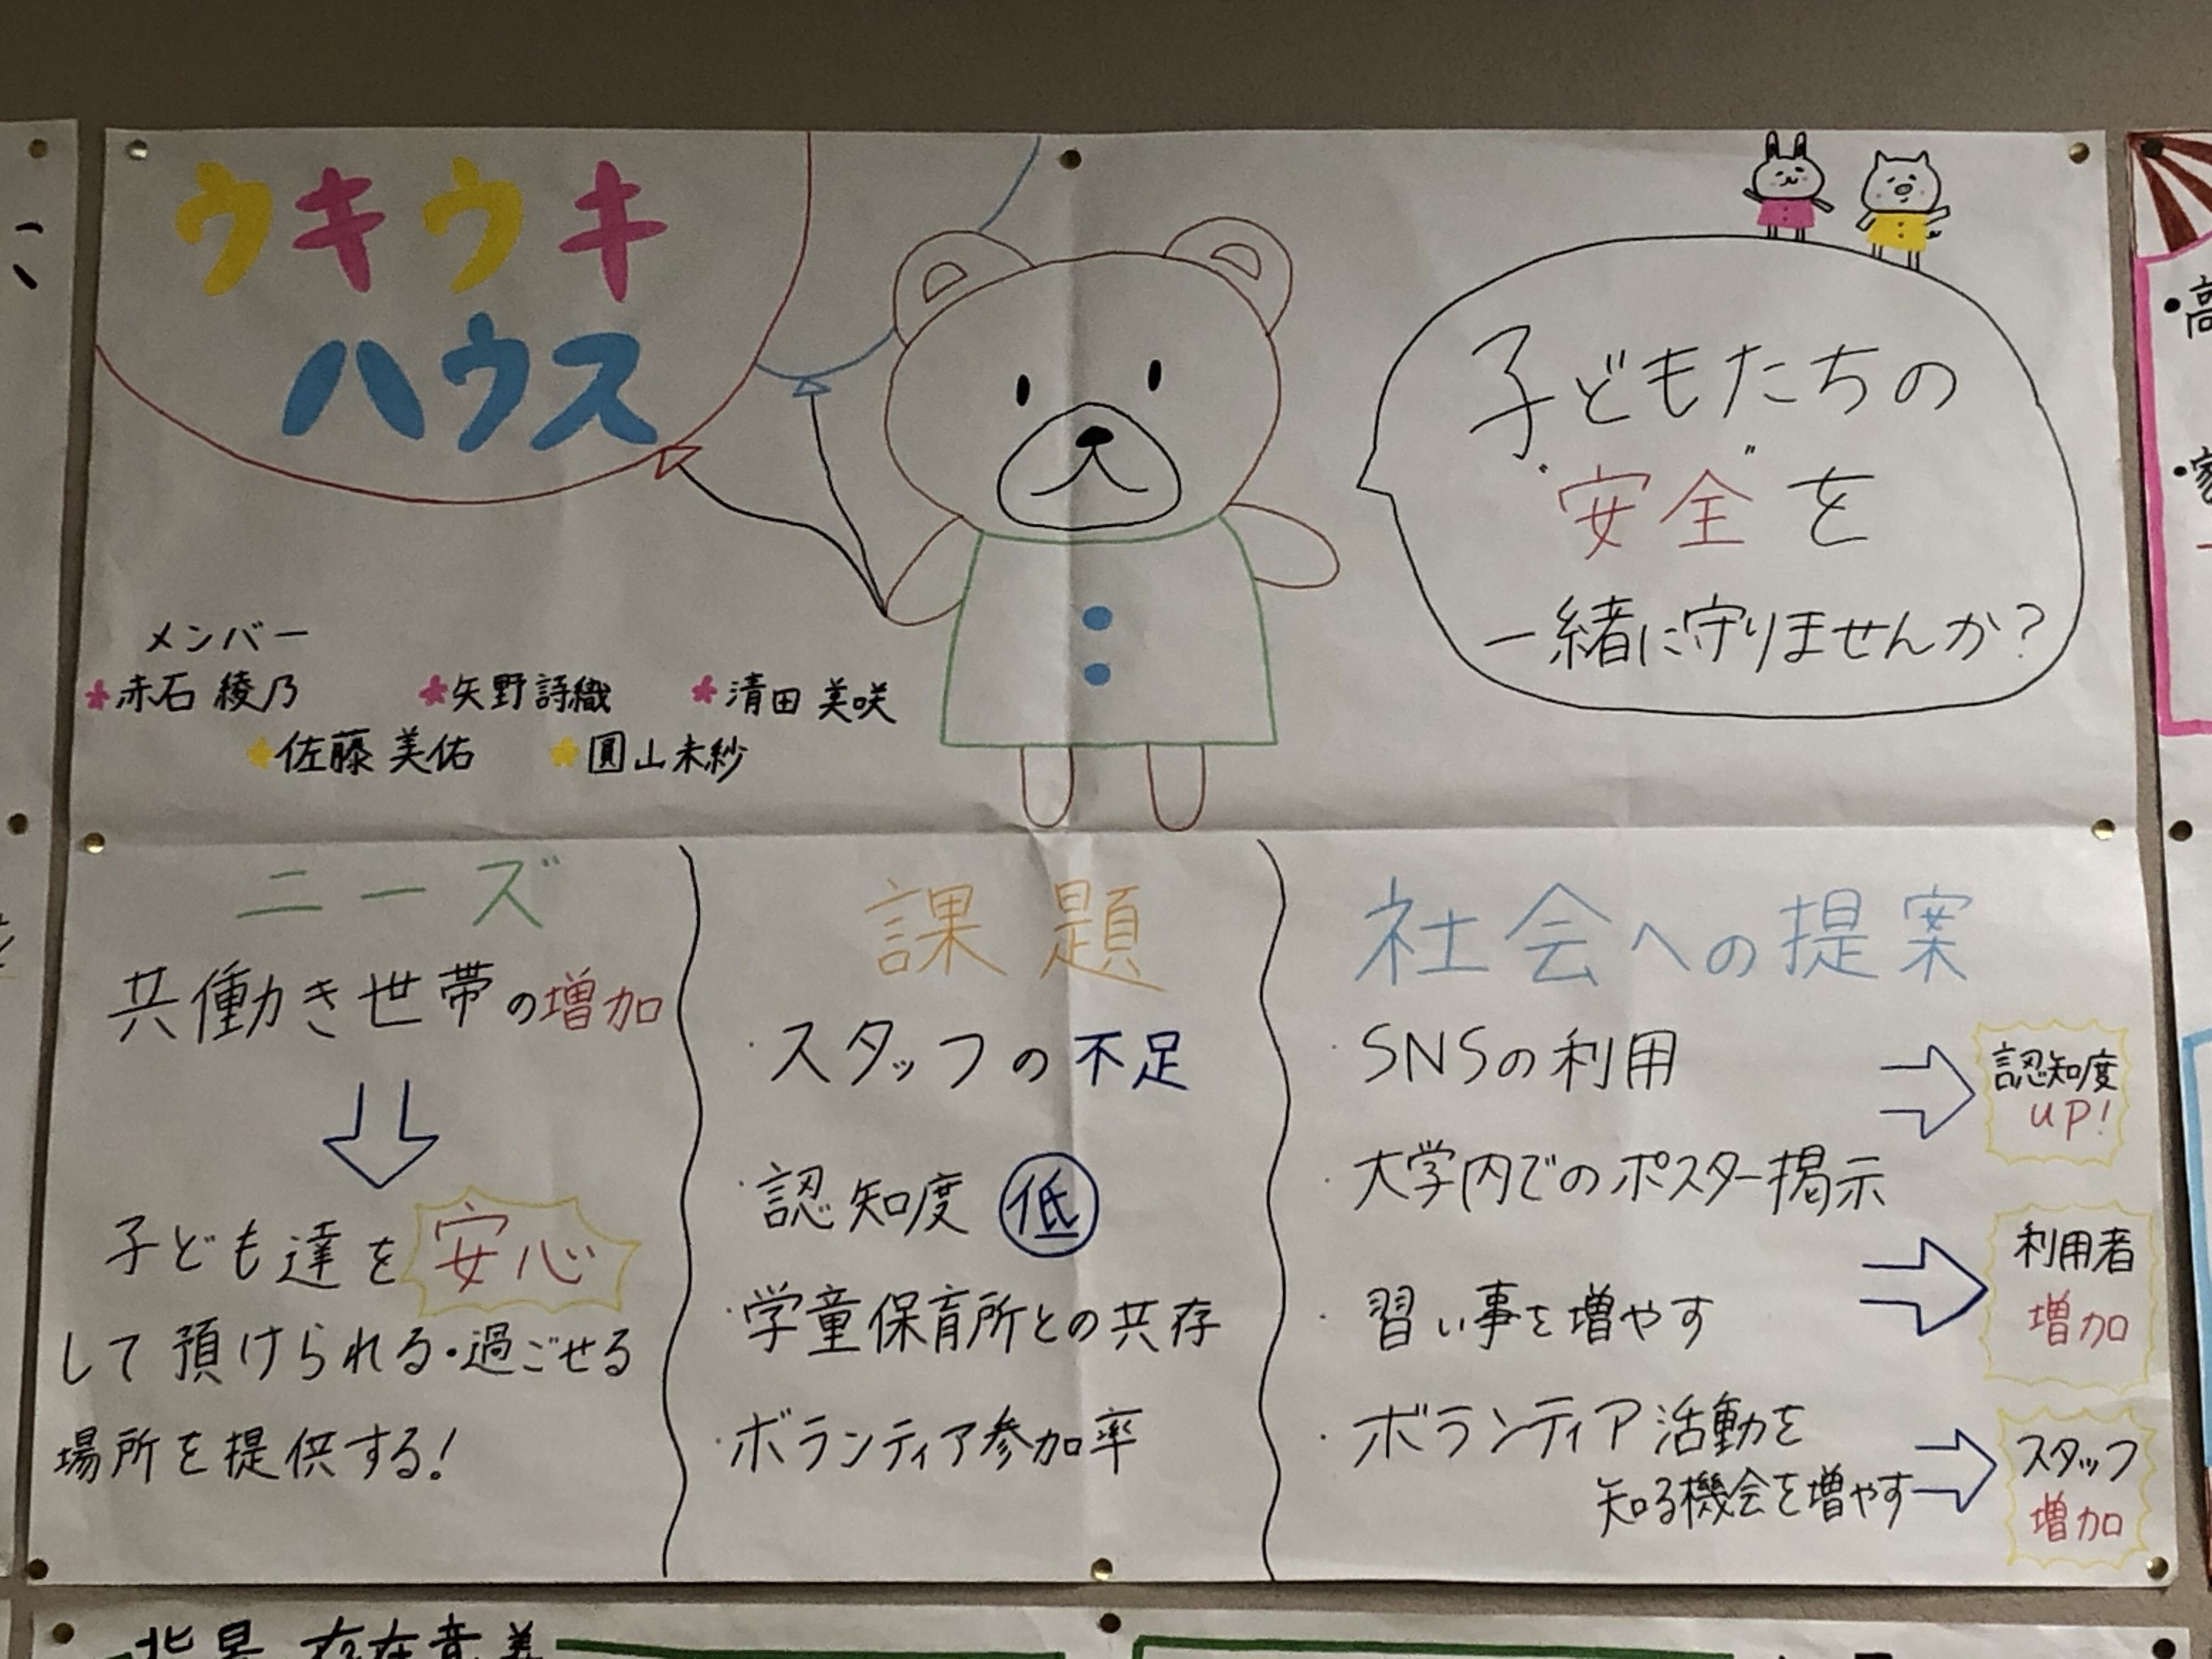 ウキウキ
ハウス
子どもたちの
"安全"を
一緒に守りませんか?
メンバー
赤石 綾乃
矢野 詩織
清田 美咲
佐藤 美佑
圓山 未紗
ニーズ
共働き世帯の増加
子ども達を安心
して預けられる・過ごせる
場所を提供する!
課題
・スタッフの不足
・認知度 低
・学童保育所との共存
・ボランティア参加率
社会への提案
・SNSの利用
認知度
UP!
・大学内でのポスター掲示
・習い事を増やす
利用者
増加
・ボランティア活動を
知る機会を増やす
スタッフ
増加
背景 存在意義